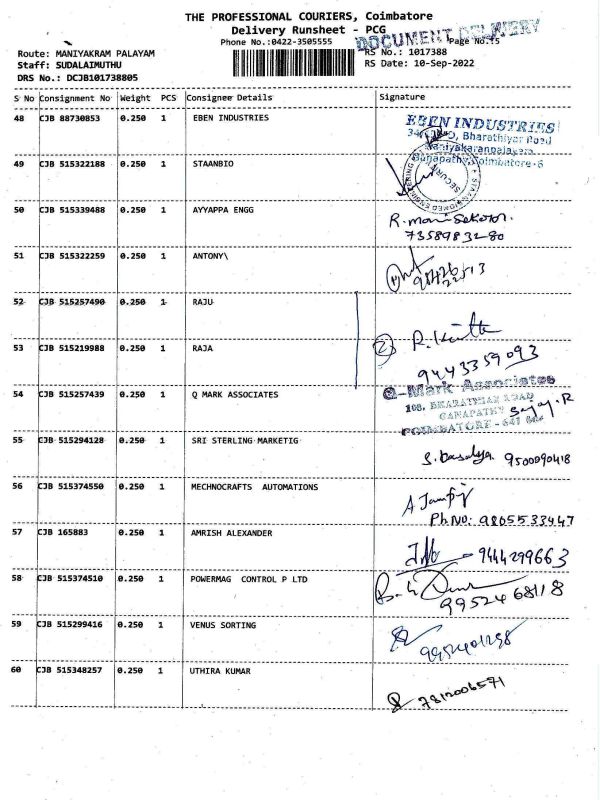 THE PROFESSIONAL COURIERS, Coimbatore
Delivery Runsheet - PCG
Phone No.:0422-3505555
DOCUMENT DELIVERY
Page No.15
Route: MANIYAKRAM PALAYAM
RS No.: 1017388
Staff: SUDALAIMUTHU
RS Date: 10-Sep-2022
DRS No.: DCJB101738805
S No Consignment No Weight PCS Consignee Details Signature
48 CJB 88730853 0.250 1 EBEN INDUSTRIES
EBEN INDUSTRIES
Bharathiyar Road
Maniyakaranpalayam
Ganapathy, Coimbatore-6
49 CJB 515322188 0.250 1 STAANBIO
SECURITY
50 CJB 515339488 0.250 1 AYYAPPA ENGG
R. mani Sekaran.
7358983280
51 CJB 515322259 0.250 1 ANTONY\
52 CJB 515257490 0.250 1 RAJU
53 CJB 515219988 0.250 1 RAJA
2
9443359093
54 CJB 515257439 0.250 1 Q MARK ASSOCIATES
Q-Mark Associates
108, BHARATHIAR ROAD
GANAPATHY
COIMBATORE - 641
Sajay.R
55 CJB 515294128 0.250 1 SRI STERLING MARKETIG
9500090418
56 CJB 515374550 0.250 1 MECHNOCRAFTS AUTOMATIONS
Ph.No: 9865533447
57 CJB 165883 0.250 1 AMRISH ALEXANDER
9444299663
58 CJB 515374510 0.250 1 POWERMAG CONTROL P LTD
9952468118
59 CJB 515299416 0.250 1 VENUS SORTING
9952401298
60 CJB 515348257 0.250 1 UTHIRA KUMAR
7812006571